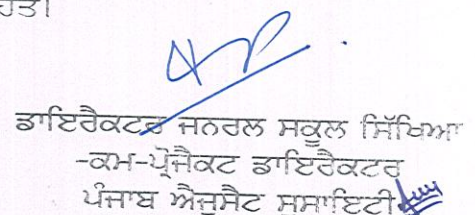 ਹਤ।
ਡਾਇਰੈਕਟਰ ਜਨਰਲ ਸਕੂਲ ਸਿੱਖਿਆ
-ਕਮ-ਪ੍ਰੋਜੈਕਟ ਡਾਇਰੈਕਟਰ
ਪੰਜਾਬ ਐਜੂਸੈਟ ਸੁਸਾਇਟੀ